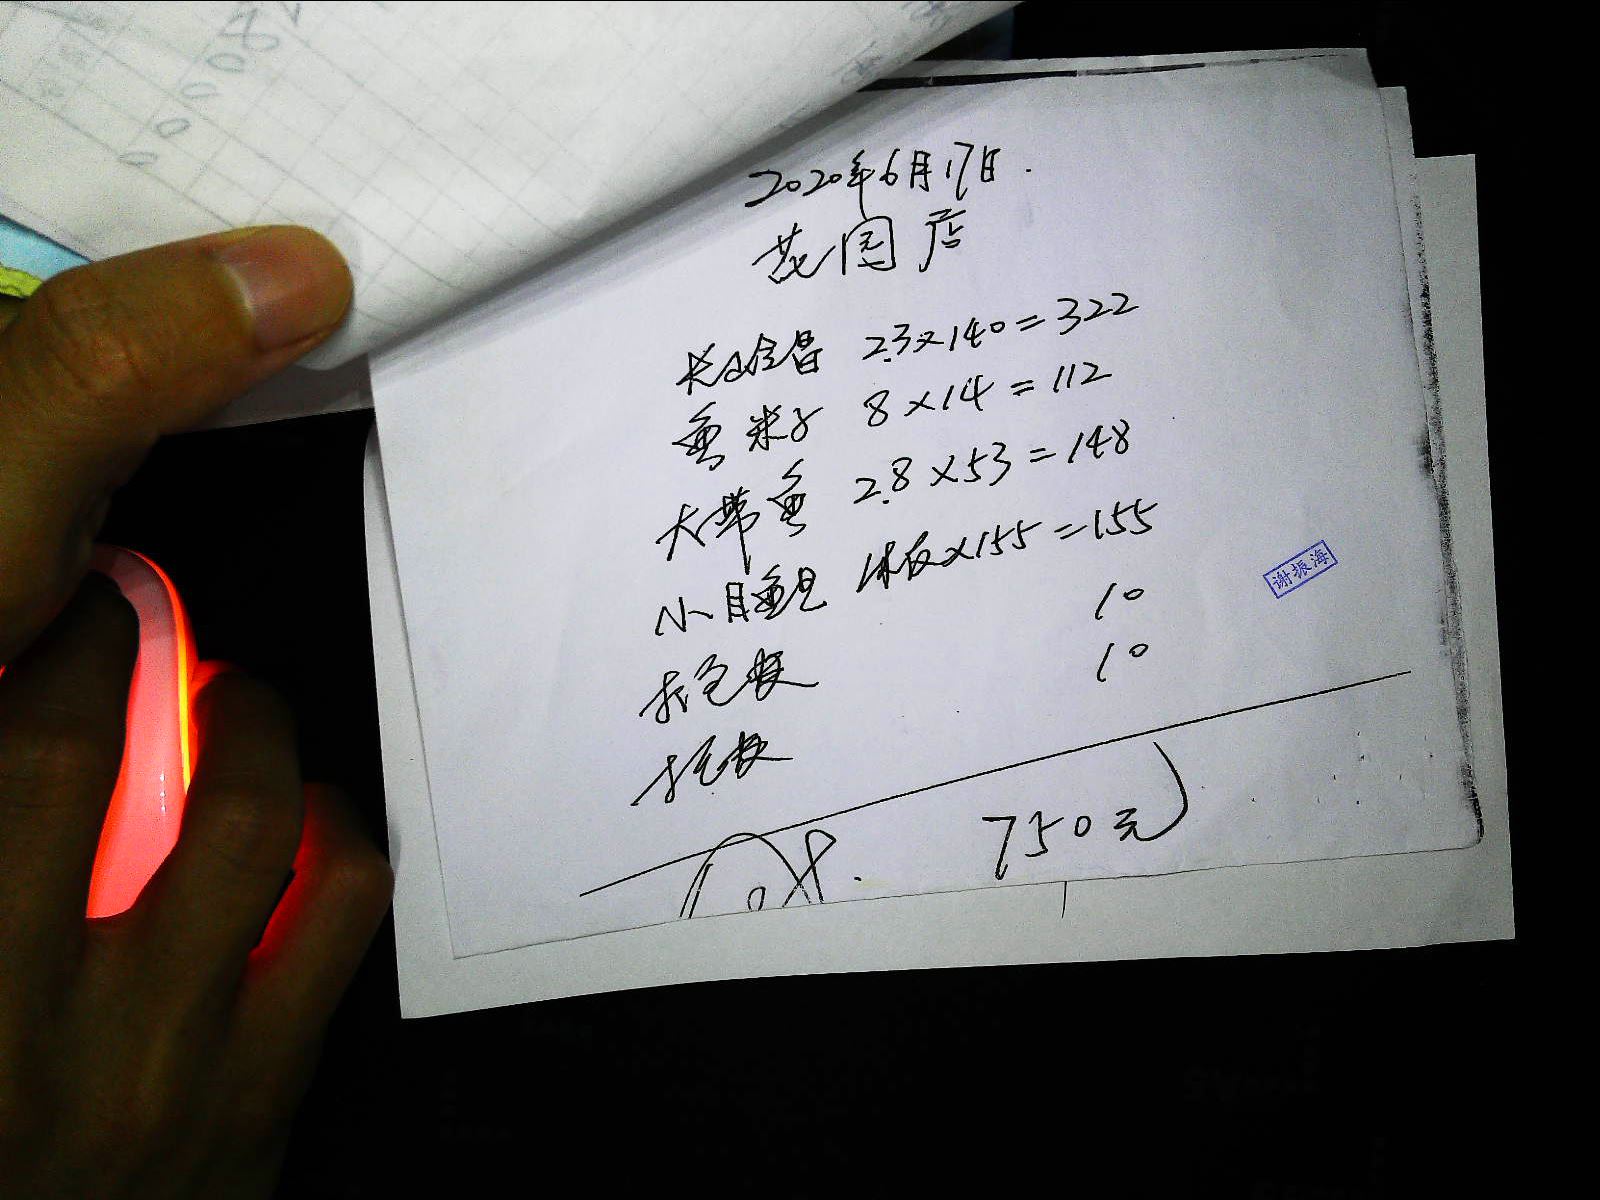 2020年6月17日.
花园店
2.3×140=322
鱼米子 8×14=112
大带鱼 2.8×53=148
小目鱼 1板×155=155
10
谢振海
打包板
10
打包板
750元